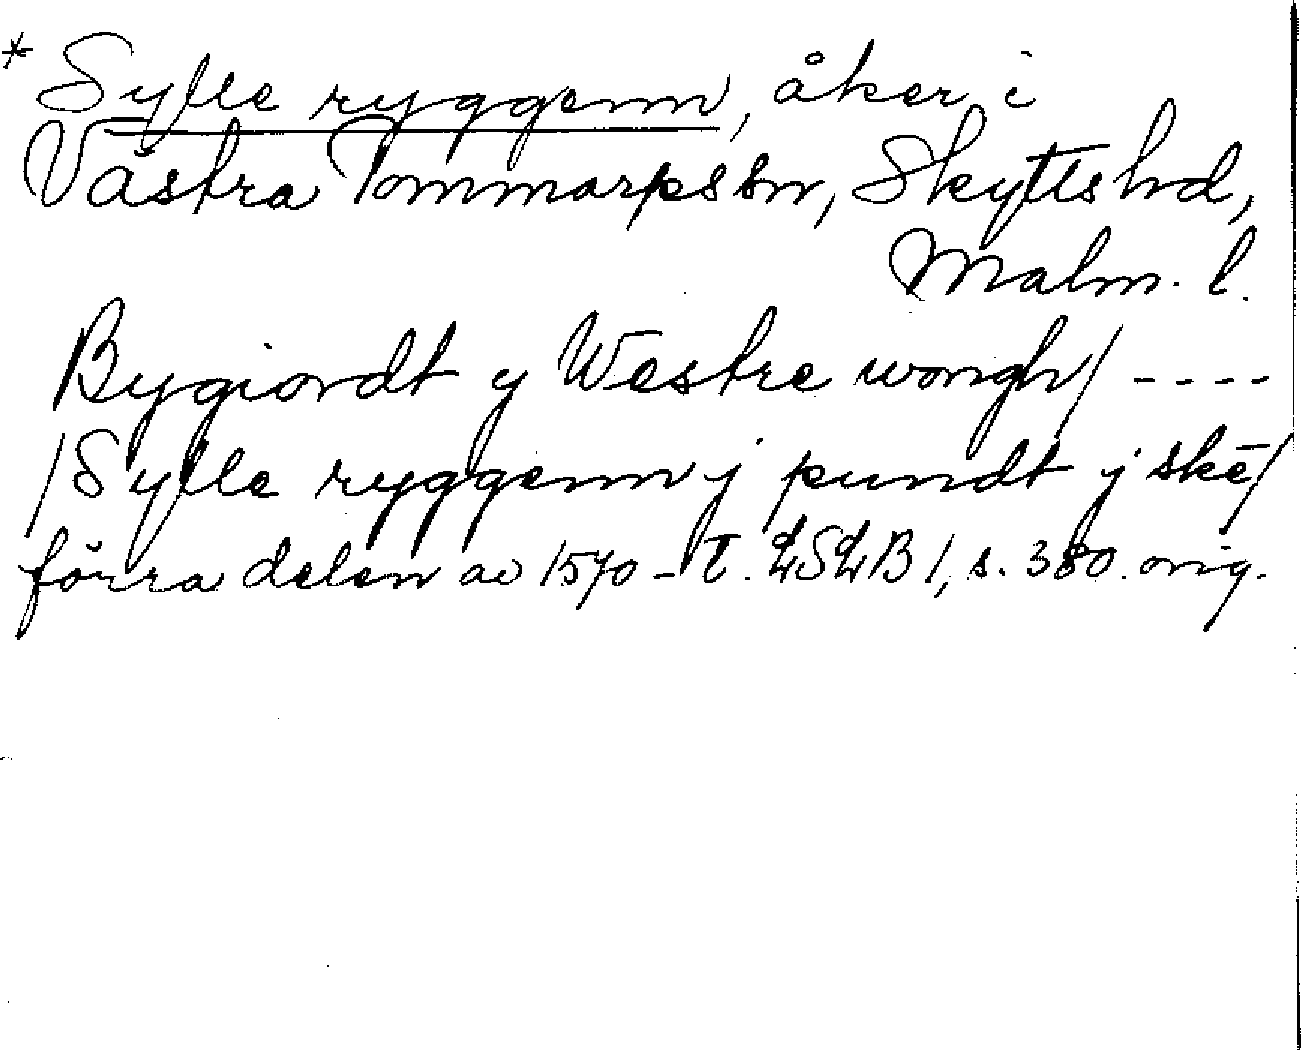 * Sylle ryggenn, åker i
Västra Tommarps sn, Skytts hd,
Malm. l.
Bygiordt y Westre wongh/ ----
/Sylle ryggenn j pundt j skē/
förra delen av 1570-t. LSLB 1, s. 380. orig.